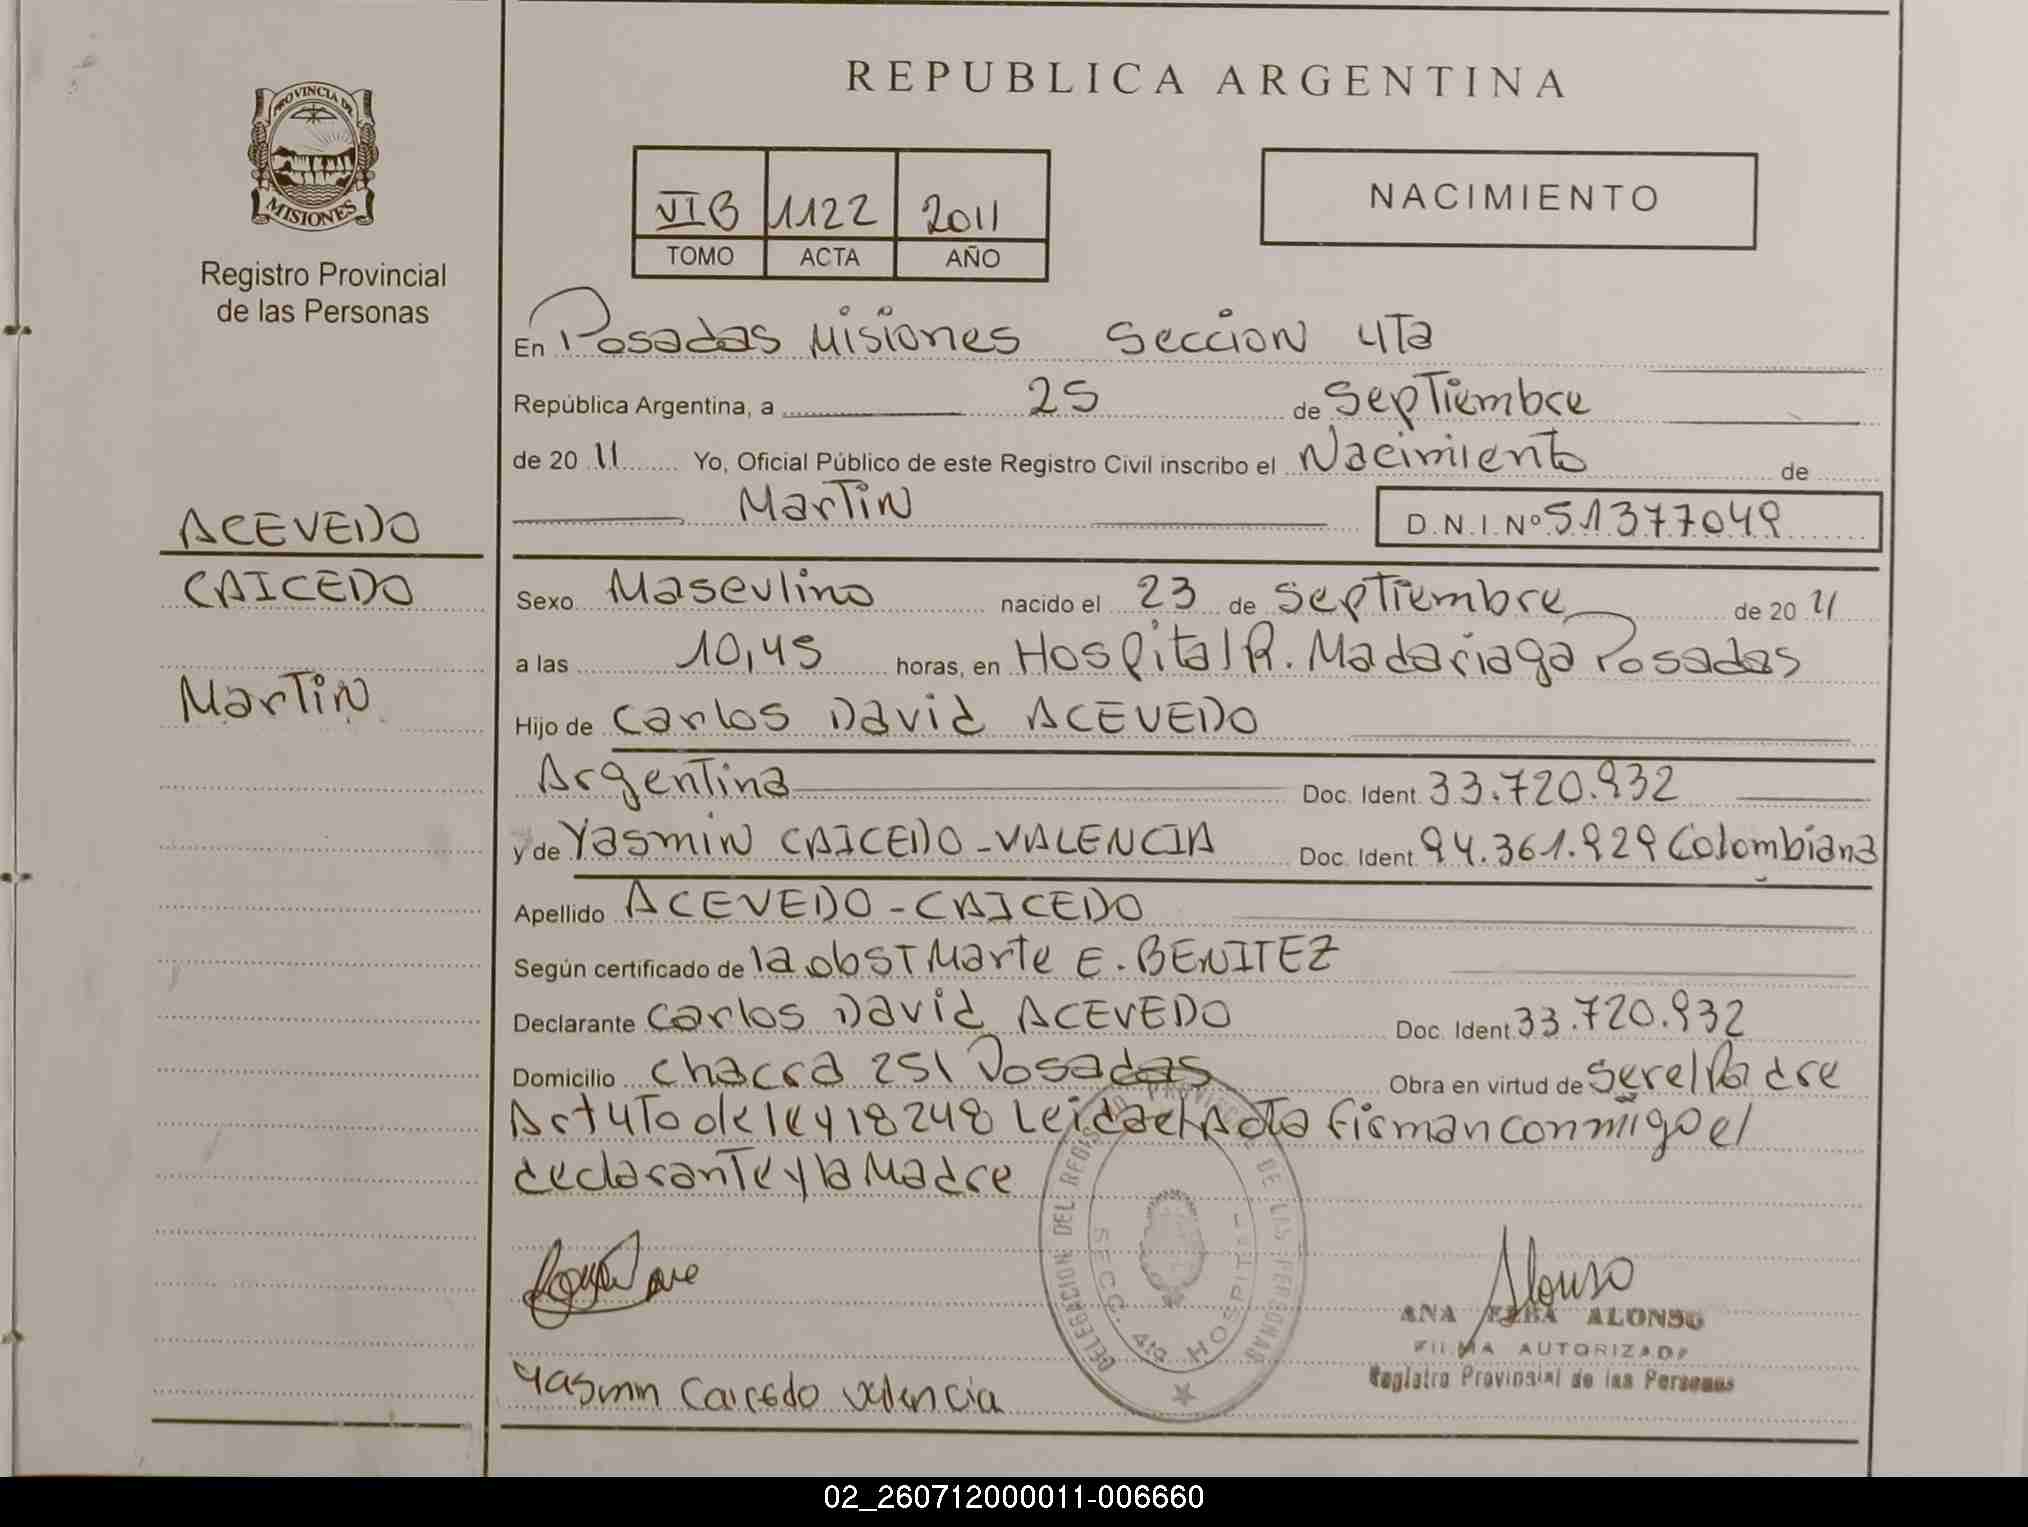 REPUBLICA ARGENTINA
PROVINCIA DE
MISIONES
Registro Provincial
de las Personas
VI B 1122 2011
TOMO ACTA AÑO
NACIMIENTO
En Posadas Misiones Seccion 4Ta
República Argentina, a 25 de Septiembre
de 2011 Yo, Oficial Público de este Registro Civil inscribo el Nacimiento de
Martin D.N.I.Nº 51377049
ACEVEDO
CAICEDO
Martin
Sexo Masculino nacido el 23 de Septiembre de 2011
a las 10,45 horas, en Hospital R. Madariaga Posadas
Hijo de Carlos David ACEVEDO
Argentina Doc. Ident. 33.720.932
y de Yasmin CAICEDO-VALENCIA Doc. Ident. 94.361.929 Colombiana
Apellido ACEVEDO-CAICEDO
Según certificado de la obst Marte E. BENITEZ
Declarante Carlos David ACEVEDO Doc. Ident. 33.720.932
Domicilio Chacra 251 Posadas Obra en virtud de ser el Padre
Art 4To de ley 18248 Leida el Acta firman conmigo el
declarante y la Madre
DELEGACION DEL REGISTRO PROVINCIAL DE LAS PERSONAS
SECC. 4ta HOSPITAL
Alonso
ANA ELBA ALONSO
FIRMA AUTORIZADA
Registro Provincial de las Personas
Yasmin Caicedo Valencia
02_260712000011-006660